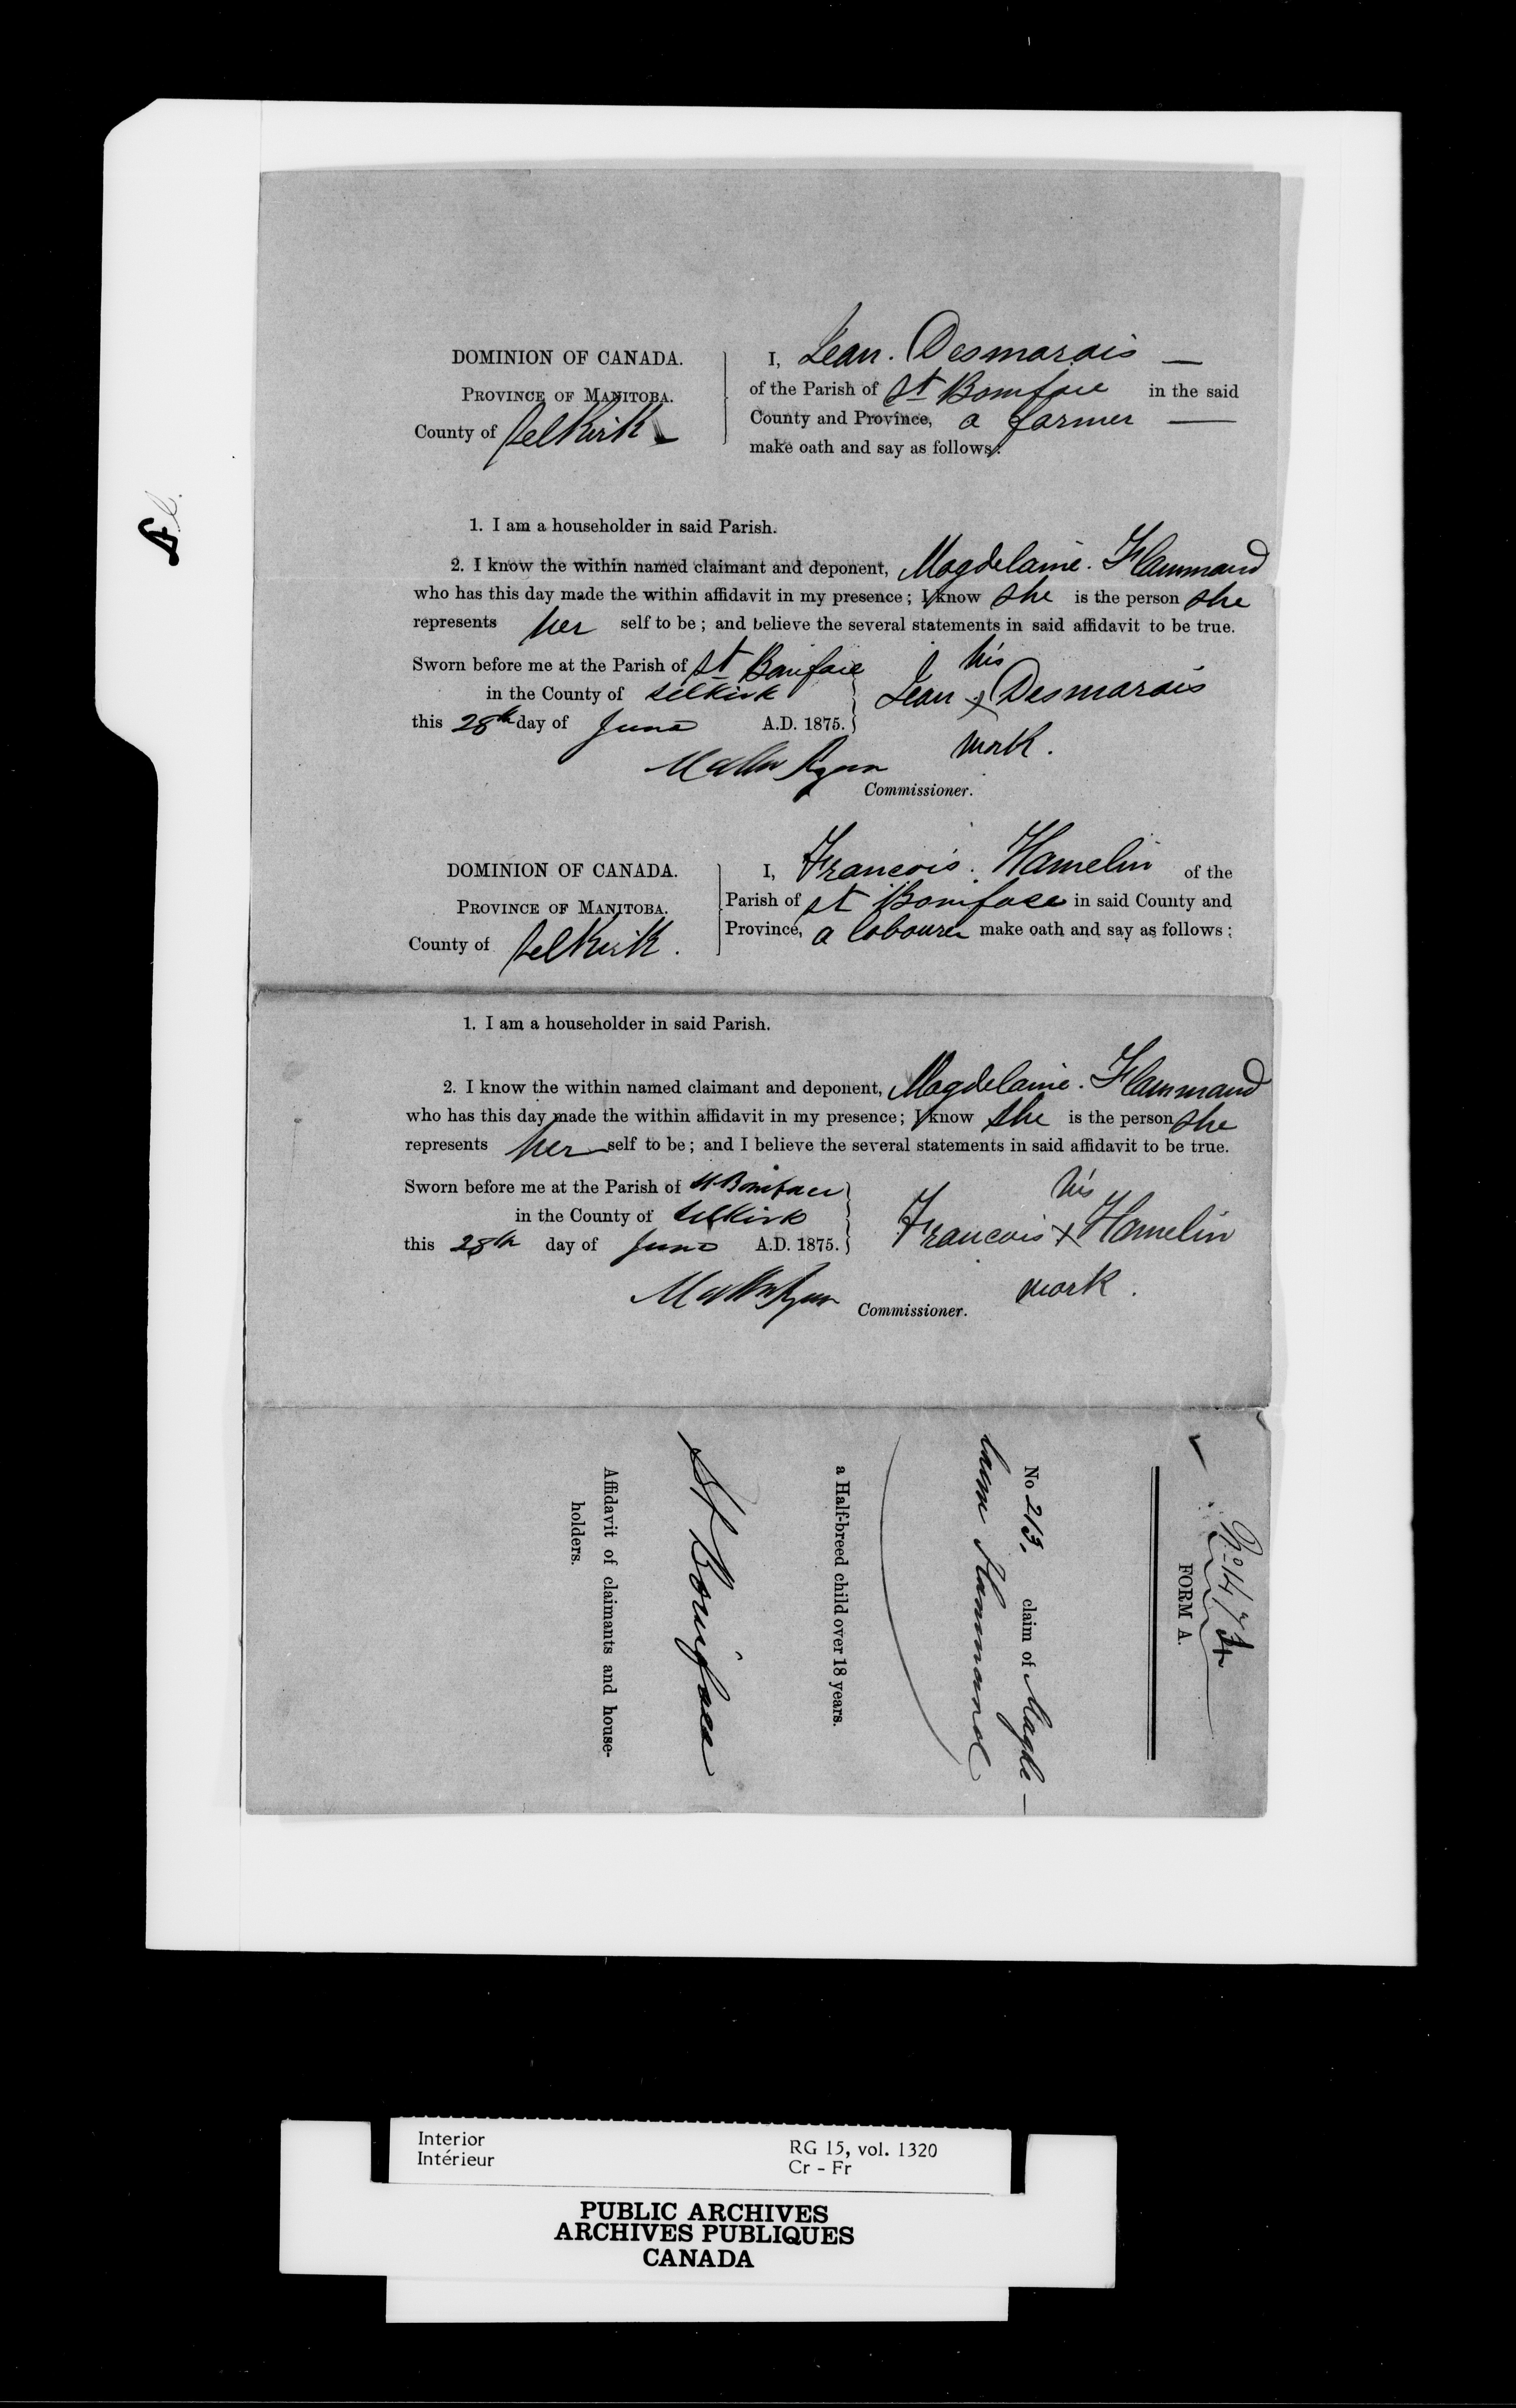 DOMINION OF CANADA.
PROVINCE OF MANITOBA.
County of Selkirk
I, Jean. Desmarais —
of the Parish of St Boniface in the said
County and Province, a farmer —
make oath and say as follows:
1. I am a householder in said Parish.
2. I know the within named claimant and deponent, Magdelaine. Flammand
who has this day made the within affidavit in my presence; I know she is the person she
represents her self to be; and believe the several statements in said affidavit to be true.
Sworn before me at the Parish of St Boniface
in the County of Selkirk
this 28th day of June A.D. 1875.
his
Jean x Desmarais
mark.
Matthw Ryan
Commissioner.
DOMINION OF CANADA.
PROVINCE OF MANITOBA.
County of Selkirk.
I, Francois. Hamelin of the
Parish of St Boniface in said County and
Province, a labourer make oath and say as follows:
1. I am a householder in said Parish.
2. I know the within named claimant and deponent, Magdelaine. Flammand
who has this day made the within affidavit in my presence; I know she is the person she
represents her self to be; and I believe the several statements in said affidavit to be true.
Sworn before me at the Parish of St Boniface
in the County of Selkirk
this 28th day of June A.D. 1875.
his
Francois x Hamelin
mark.
Matthw Ryan
Commissioner.
FORM A.
No 213. claim of Magde-
laine Flammand
a Half-breed child over 18 years.
St Boniface
Affidavit of claimants and house-
holders.
Interior
Intérieur
RG 15, vol. 1320
Cr - Fr
PUBLIC ARCHIVES
ARCHIVES PUBLIQUES
CANADA